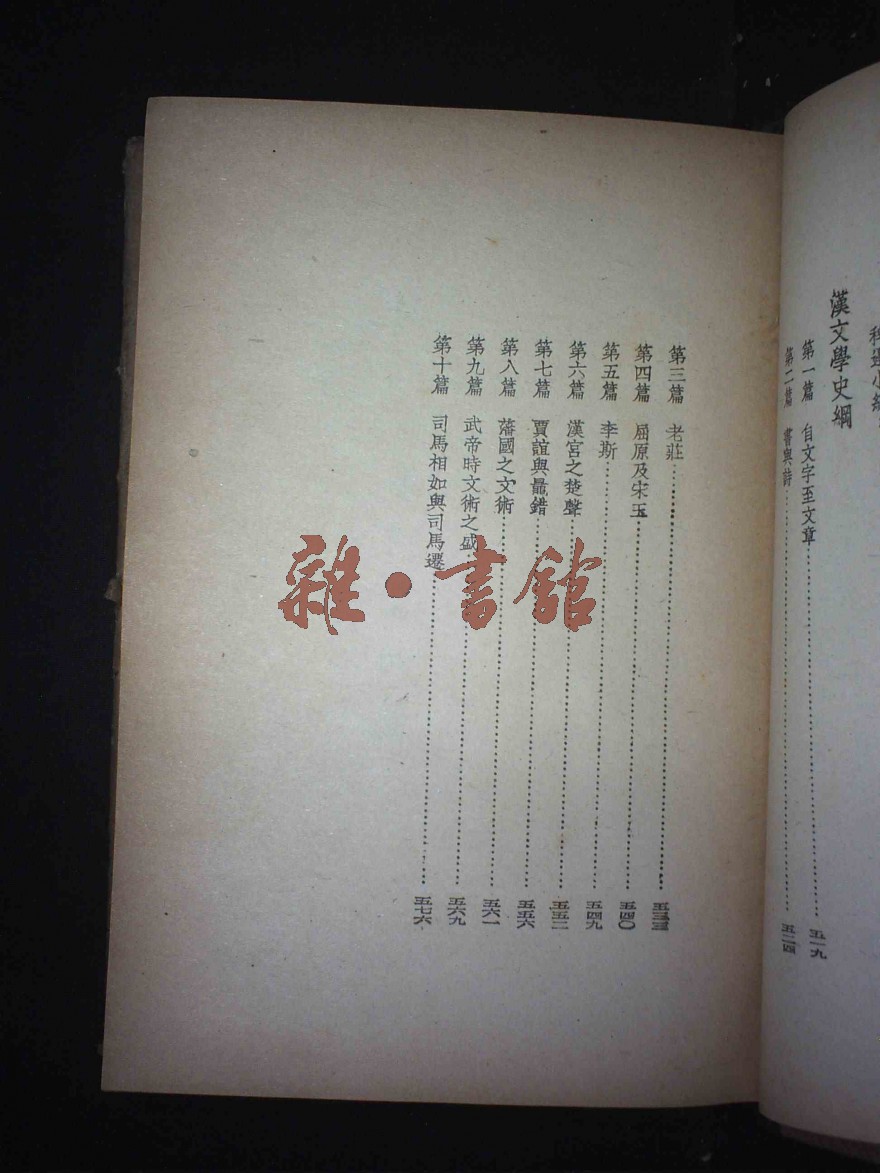 漢文學史綱
第一篇 自文字至文章 五一九
第二篇 書與詩 五二四
第三篇 老莊 五三三
第四篇 屈原及宋玉 五四〇
第五篇 李斯 五四九
第六篇 漢宮之楚聲 五五二
第七篇 賈誼與鼂錯 五五六
第八篇 藩國之文術 五六一
第九篇 武帝時文術之盛 五六九
第十篇 司馬相如與司馬遷 五七六
雜·書館